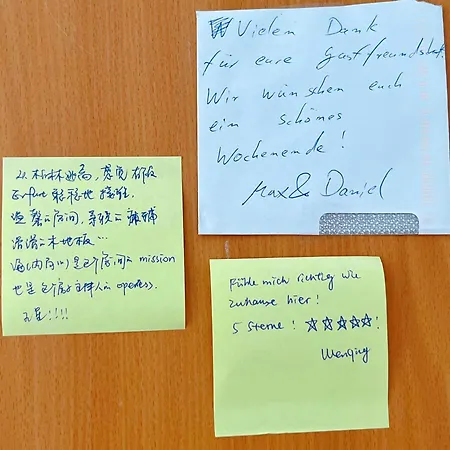 Vielen Dank
für eure Gastfreundschaft.
Wir wünschen euch
ein schönes
Wochenende!
Max & Daniel
从柏林
Erfurt 稳稳地接住
温馨的房间,
滑滑的木地板…
是这个房间的 mission
也是这个房子主人的
五星!!!!
Fühle mich richtig wie
zuhause hier!
5 Sterne! ☆☆☆☆☆!
Wenqing